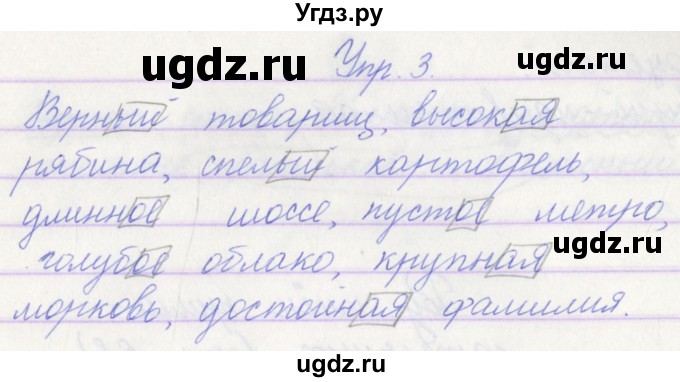 Угдз.ру
ugdz.ru ugdz.ru
Упр. 3.
Верный товарищ, высокая
рябина, спелый картофель,
длинное шоссе, пустое метро,
голубое облако, крупная
ugdz.ru
морковь, достойная фамилия.
ugdz.ru